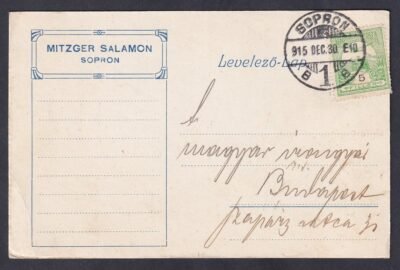 MITZGER SALAMON
SOPRON
Levelező-Lap
SOPRON
915 DEC.30 E10
B 1 B
5
A
magyar
Budapest
utca